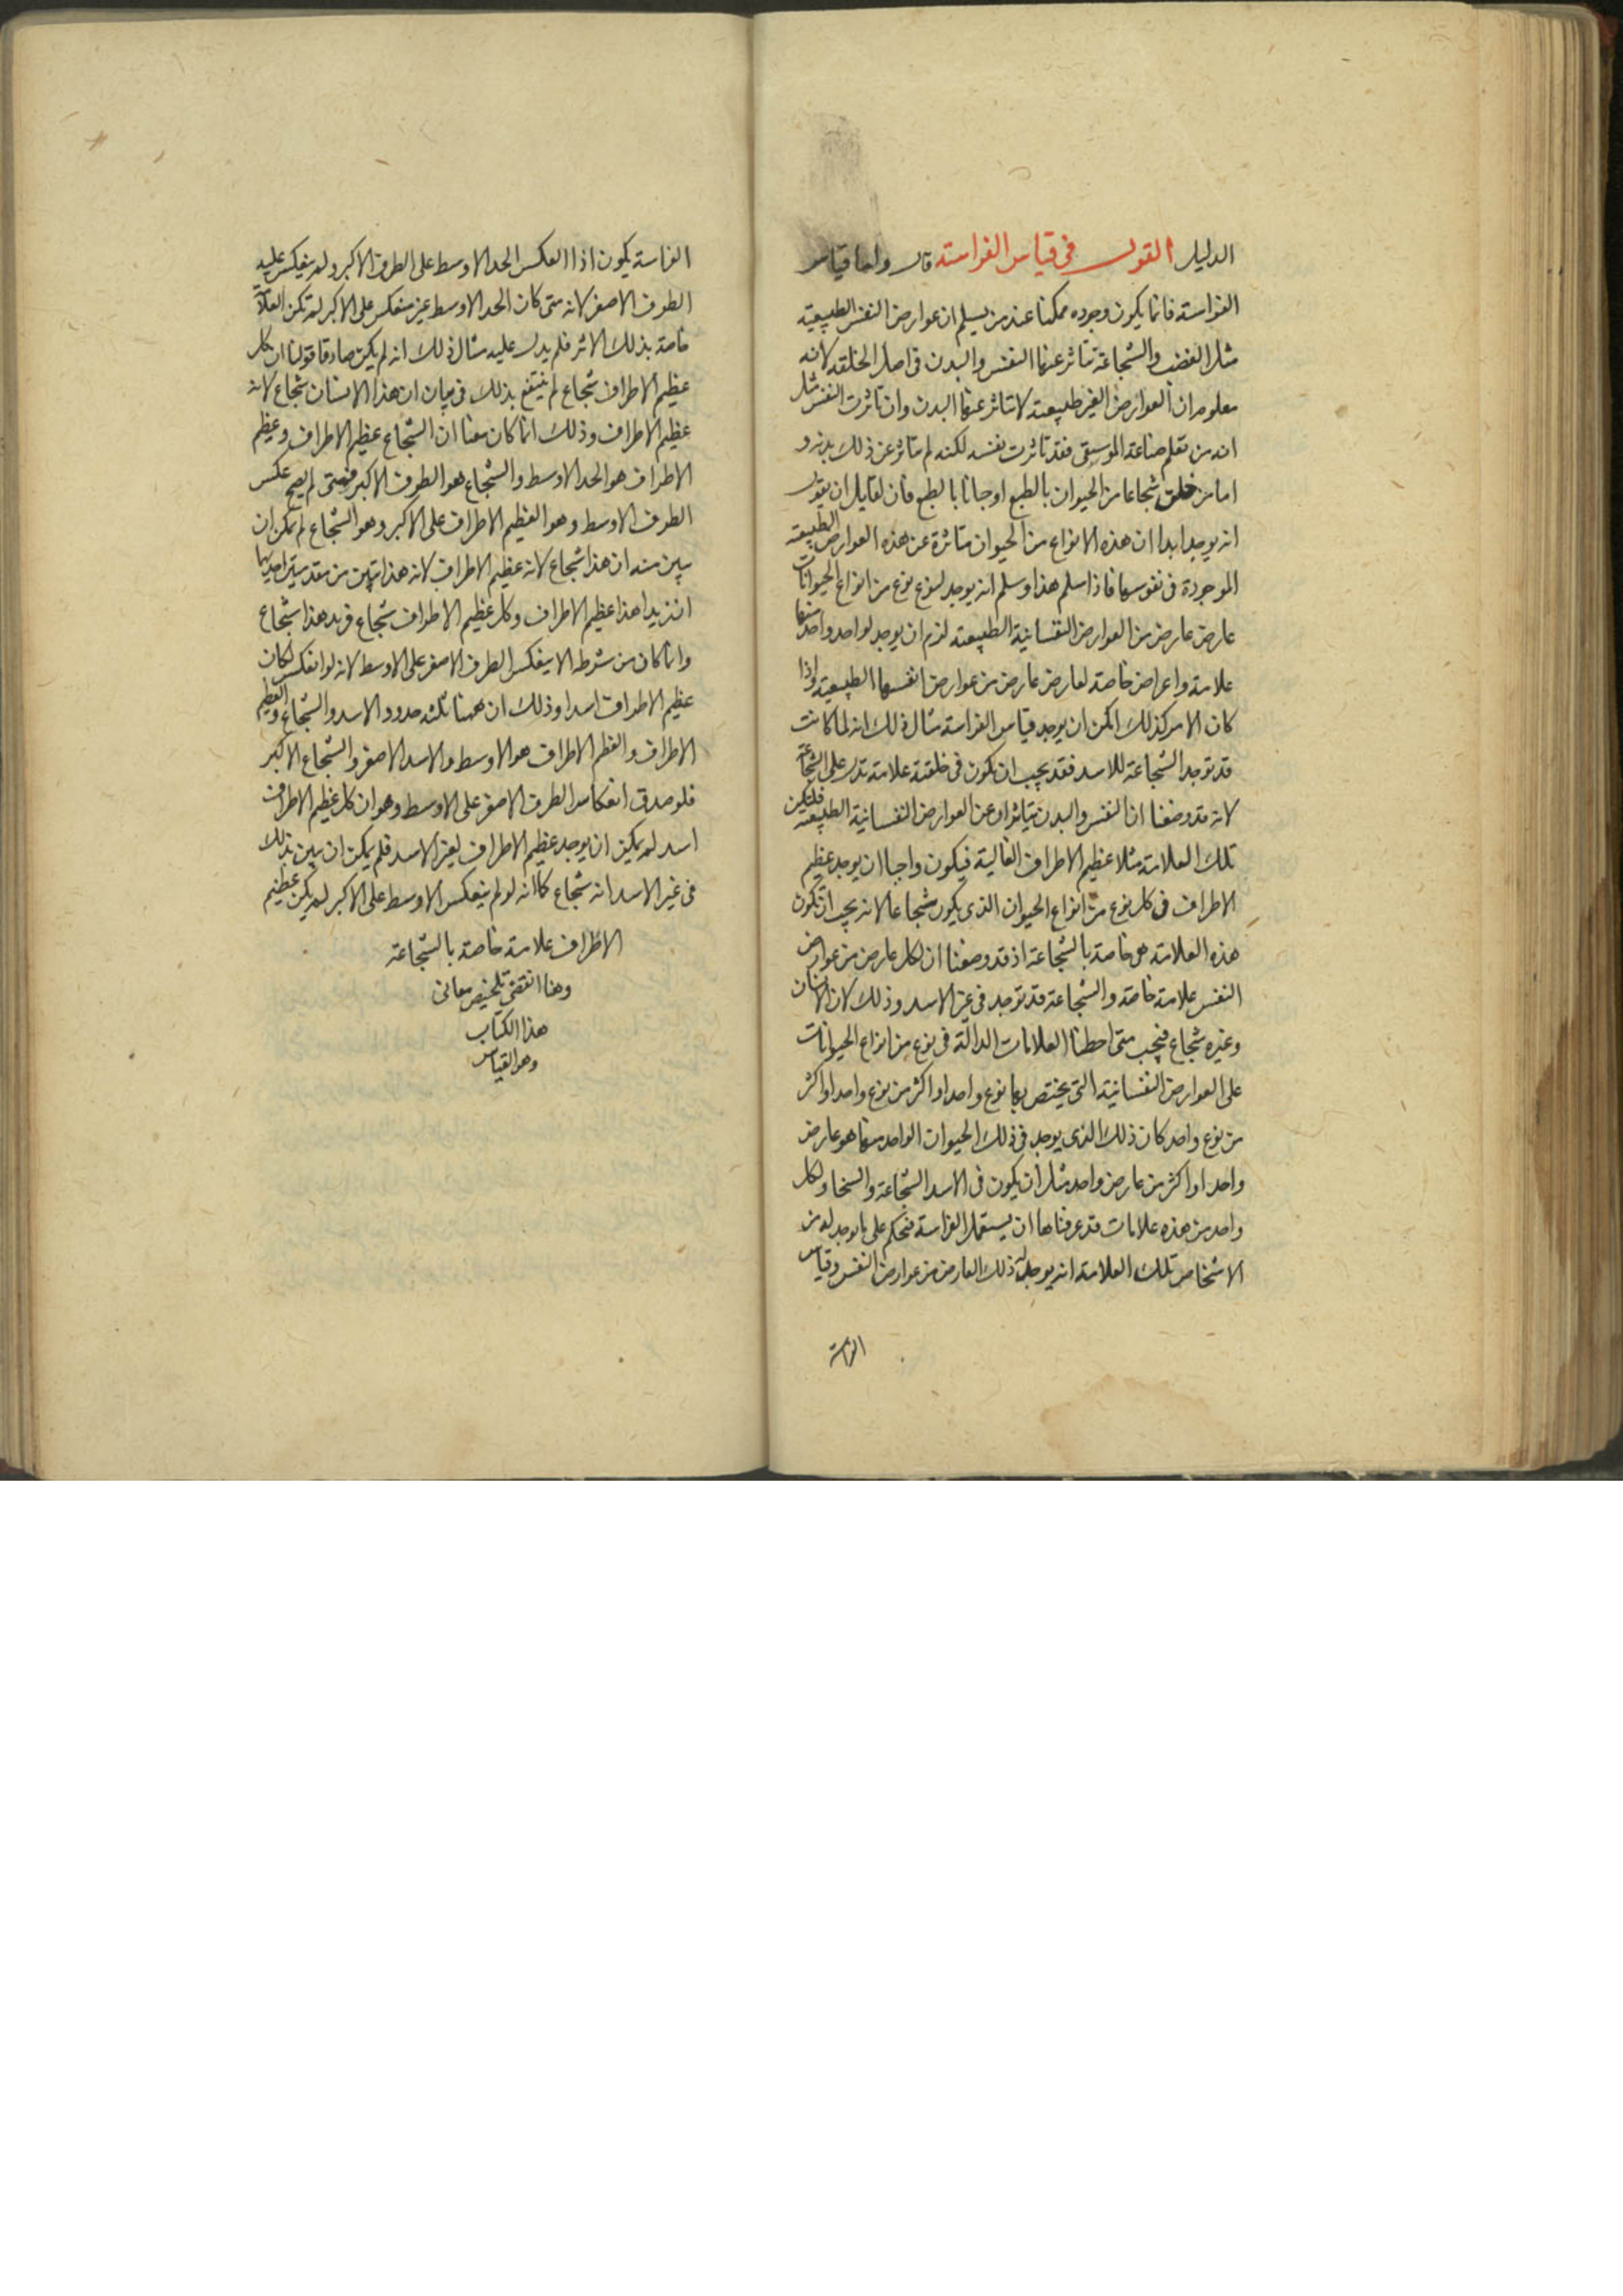 الدليل القول في قياس الفراسة قال واما قياس
الفراسة فانما يكون وجوده ممكنا عند من يسلم ان عوارض النفس الطبيعية
مثل الغضب والشجاعة تتاثر عنها النفس والبدن في اصل الخلقة لانه
معلوم ان العوارض الغير طبيعية لا تتاثر عنها البدن وان تاثرت النفس مثل
انه من تعلم صناعة الموسيقى فقد تاثرت نفسه لكنه لم يتاثر عن ذلك بدنه و
اما من خلق شجاعا من الحيوان بالطبع او جبانا بالطبع فان لقايل ان يقول
انه يوجد ابدا ان هذه الانواع من الحيوان متاثرة عن هذه العوارض الطبيعية
الموجودة في نفوسها فاذا سلم هذا وسلم انه يوجد لنوع نوع من انواع الحيوانات
عارض عارض من العوارض النفسانية الطبيعية لزم ان يوجد لواحد واحد منها
علامة واعراض خاصة لعارض عارض من عوارض انفسها الطبيعية واذا
كان الامر كذلك امكن ان يوجد قياس الفراسة مثال ذلك انه لما كانت
قد توجد الشجاعة للاسد فقد يجب ان تكون في خلقته علامة تدل على الشجاعة
لانه قد وضعنا ان النفس والبدن يتاثران عن العوارض النفسانية الطبيعية فلتكن
تلك العلامة مثلا عظيم الاطراف العالية فيكون واجبا ان يوجد عظيم
الاطراف في كل نوع من انواع الحيوان الذي يكون شجاعا لانه يجب ان تكون
هذه العلامة هي خاصة بالشجاعة اذ قد وضعنا ان لكل عارض من عوارض
النفس علامة خاصة والشجاعة قد توجد في غير الاسد وذلك لان الانسان
وغيره شجاع فيجب متى احطنا العلامات الدالة في نوع من انواع الحيوانات
على العوارض النفسانية التي يختص بها نوع واحد او اكثر من نوع واحد او اكثر
من نوع واحد كان ذلك الذي يوجد في ذلك الحيوان الواحد منها هو عارض
واحد او اكثر من عارض واحد مثل ان يكون في الاسد الشجاعة والسخا ولكل
واحد من هذه علامات قد عرفناها ان يستعمل الفراسة فنحكم على ما يوجد له من
الاشخاص تلك العلامة انه يوجد له ذلك العارض من عوارض النفس وقياس
الفراسة
الفراسة يكون اذا انعكس الحد الاوسط على الطرف الاكبر ولم ينعكس عليه
الطرف الاصغر لانه متى كان الحد الاوسط غير منعكس على الاكبر لم تكن العلامة
خاصة بذلك الاثر فلم يدل عليه مثال ذلك انه لم يكن صادقا قولنا ان كل
عظيم الاطراف شجاع لم ينتفع بذلك في بيان ان هذا الانسان شجاع لانه
عظيم الاطراف وذلك انما كان معنا ان الشجاع عظيم الاطراف وعظيم
الاطراف هو الحد الاوسط والشجاع هو الطرف الاكبر فمتى لم يصح عكس
الطرف الاوسط وهو العظيم الاطراف على الاكبر وهو الشجاع لم يمكن ان
يبين منه ان هذا شجاع لانه عظيم الاطراف لانه هذا تبين من مقدمتين احديهما
ان زيدا هذا عظيم الاطراف وكل عظيم الاطراف شجاع فزيد هذا شجاع
وانما كان من شرطه الا ينعكس الطرف الاصغر على الاوسط لانه لو انعكس لكان
عظيم الاطراف اسدا وذلك ان ههنا ثلثة حدود الاسد والشجاع والعظيم
الاطراف والعظم الاطراف هو الاوسط والاسد الاصغر والشجاع الاكبر
فلو صدق انعكاس الطرف الاصغر على الاوسط وهو ان كل عظيم الاطراف
اسد لم يمكن ان يوجد عظيم الاطراف لغير الاسد فلم يمكن ان يبين بذلك
في غير الاسد انه شجاع كما انه لو لم ينعكس الاوسط على الاكبر لم يكن عظيم
الاطراف علامة خاصة بالشجاعة
وهنا انقضى تلخيص معاني
هذا الكتاب
وهو القياس